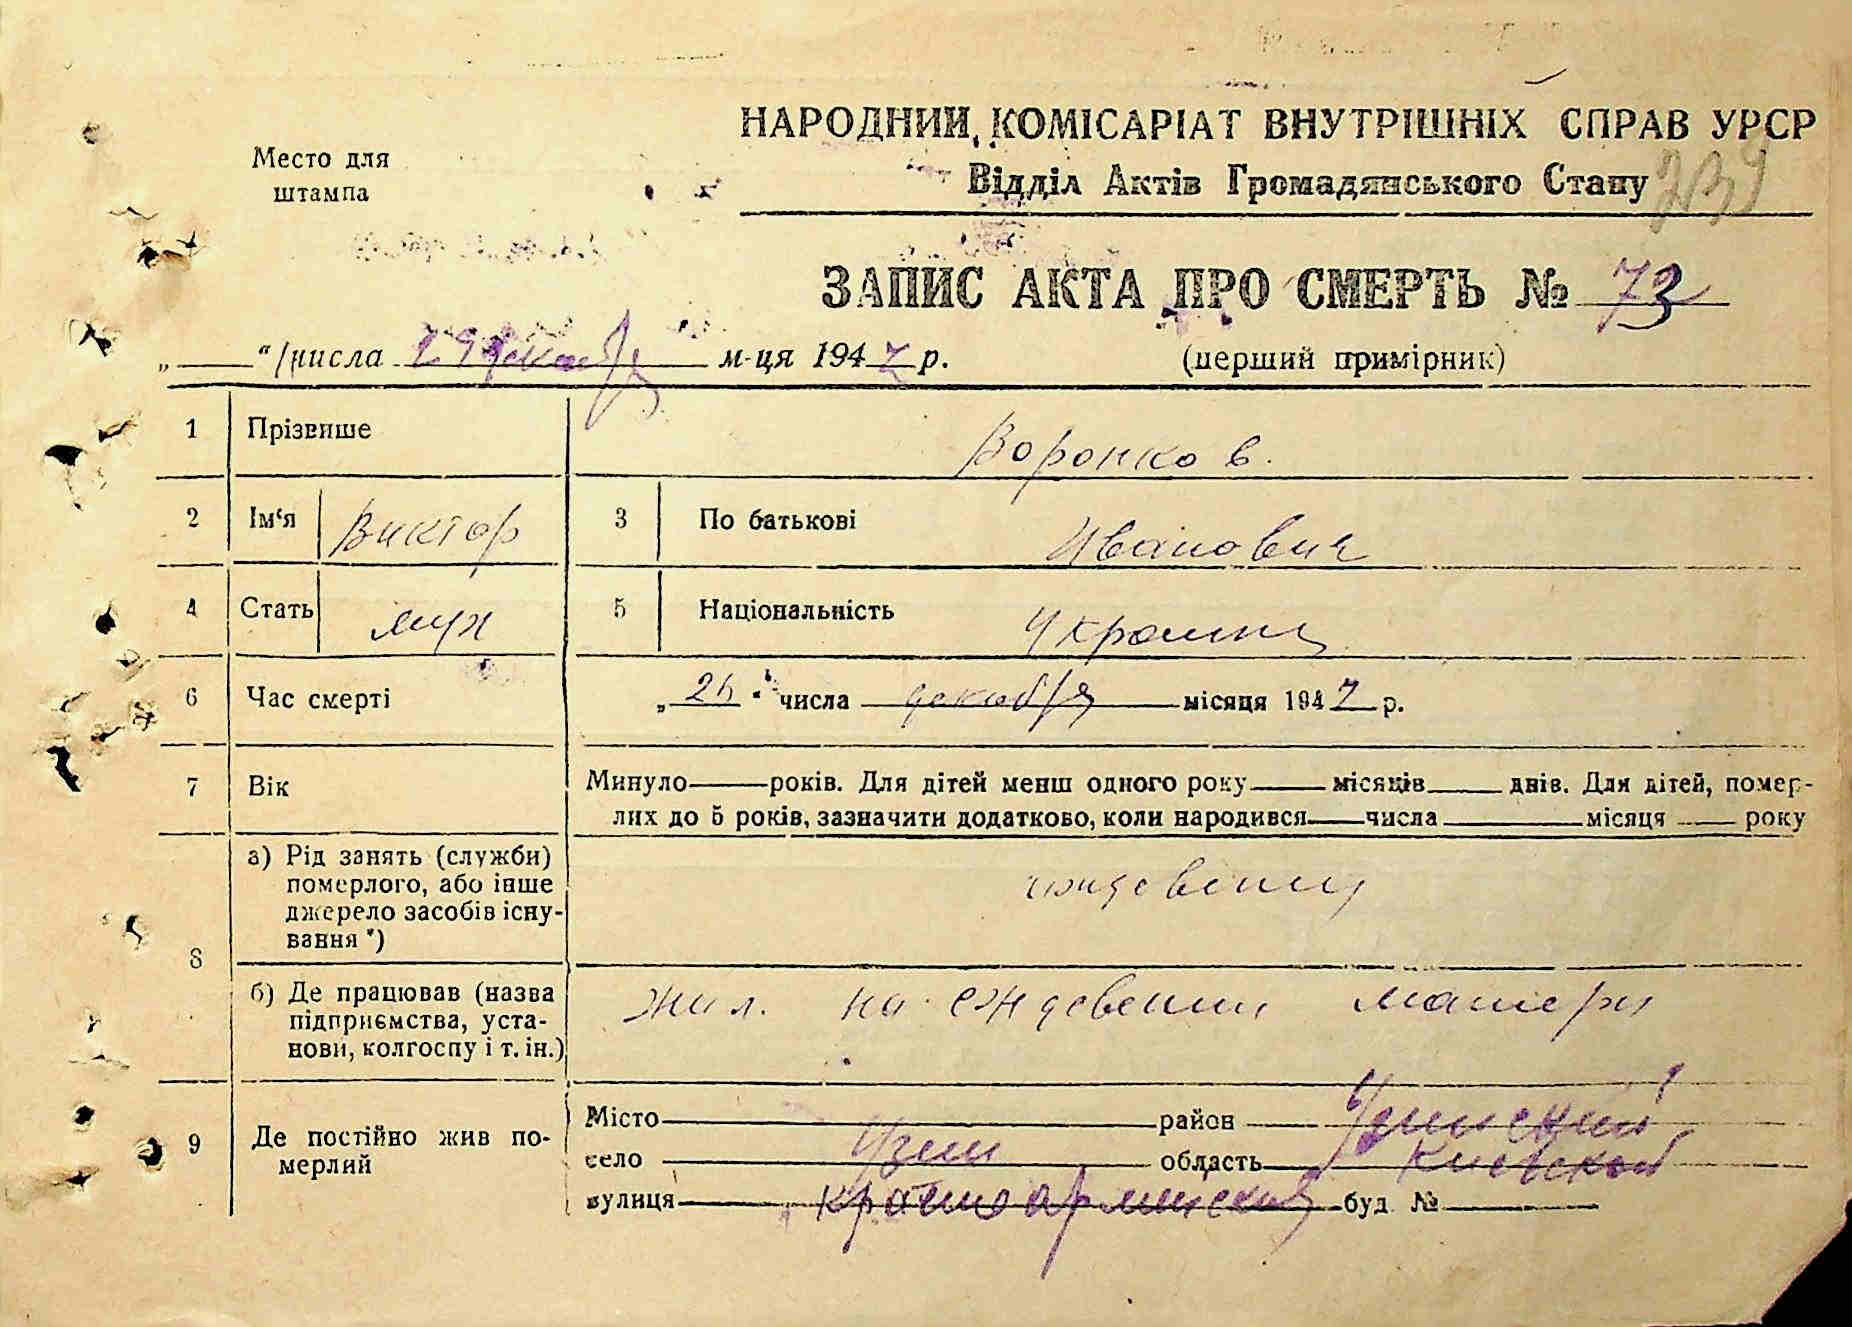 НАРОДНИЙ КОМІСАРІАТ ВНУТРІШНІХ СПРАВ УРСР
Место для штампа
Відділ Актів Громадянського Стану
239
ЗАПИС АКТА ПРО СМЕРТЬ № 73
„ “ числа 29 декабря м-ця 1947 р.
(перший примірник)
1 Прізвише Воронков.
2 Ім‘я Виктор 3 По батькові Иванович
4 Стать муж 5 Національність Украинец
6 Час смерті „ “ числа декабря місяця 1947 р.
7 Вік Минуло років. Для дітей менш одного року місяців днів. Для дітей, помер-
лих до 5 років, зазначити додатково, коли народився числа місяця року
8 а) Рід занять (служби)
померлого, або інше
джерело засобів існу-
вання *)
иждевенец
б) Де працював (назва
підприємства, уста-
нови, колгоспу і т. ін.)
жил. на еждевении матери
9 Де постійно жив по-
мерлий
Місто район Узинский
село Узин область Киевской
вулиця Красноармейская буд. №